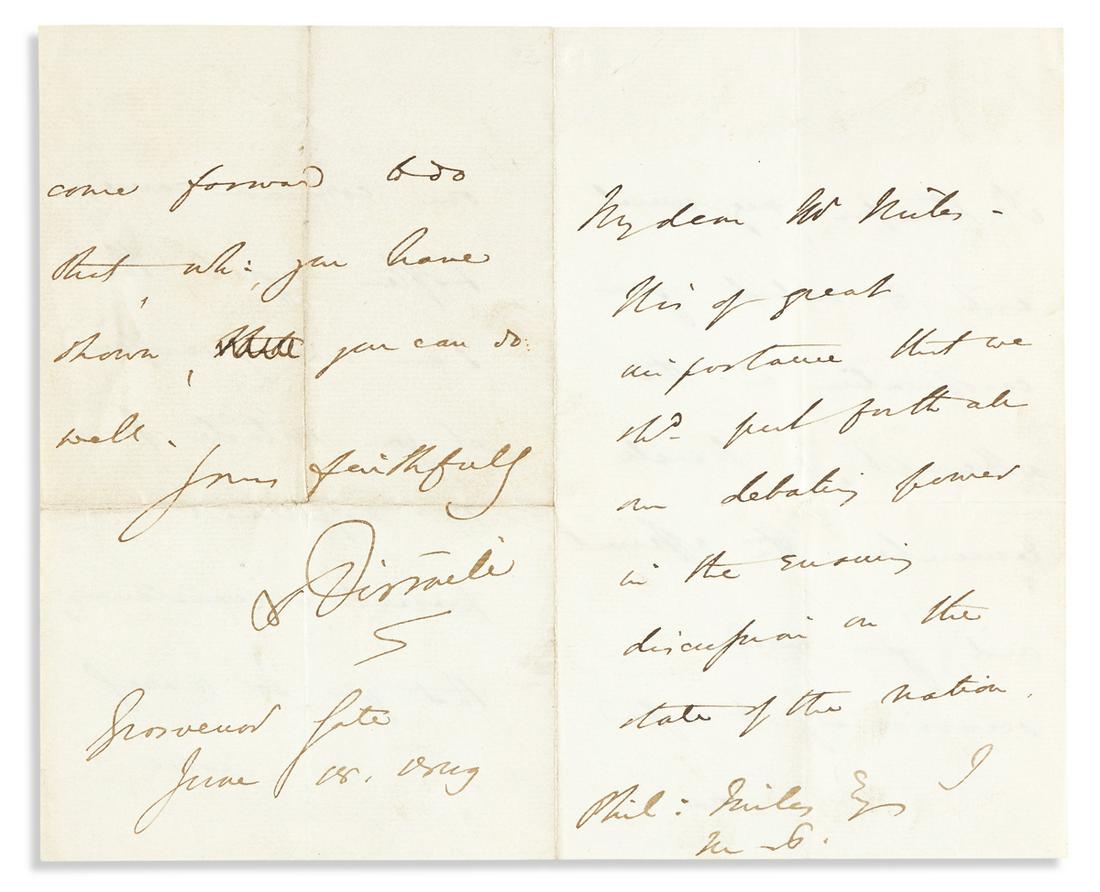 My dear Mr Miles -
Tis of great
importance that we
shd. put forth all
our debating power
in the ensuing
discussion on the
state of the nation.
I
Phil: Miles Esq
M.P.
come forward to do
that, wh:, you have
shown, you can do
well.
Yours faithfully
B Disraeli
Grosvenor Gate
June 18. 1849